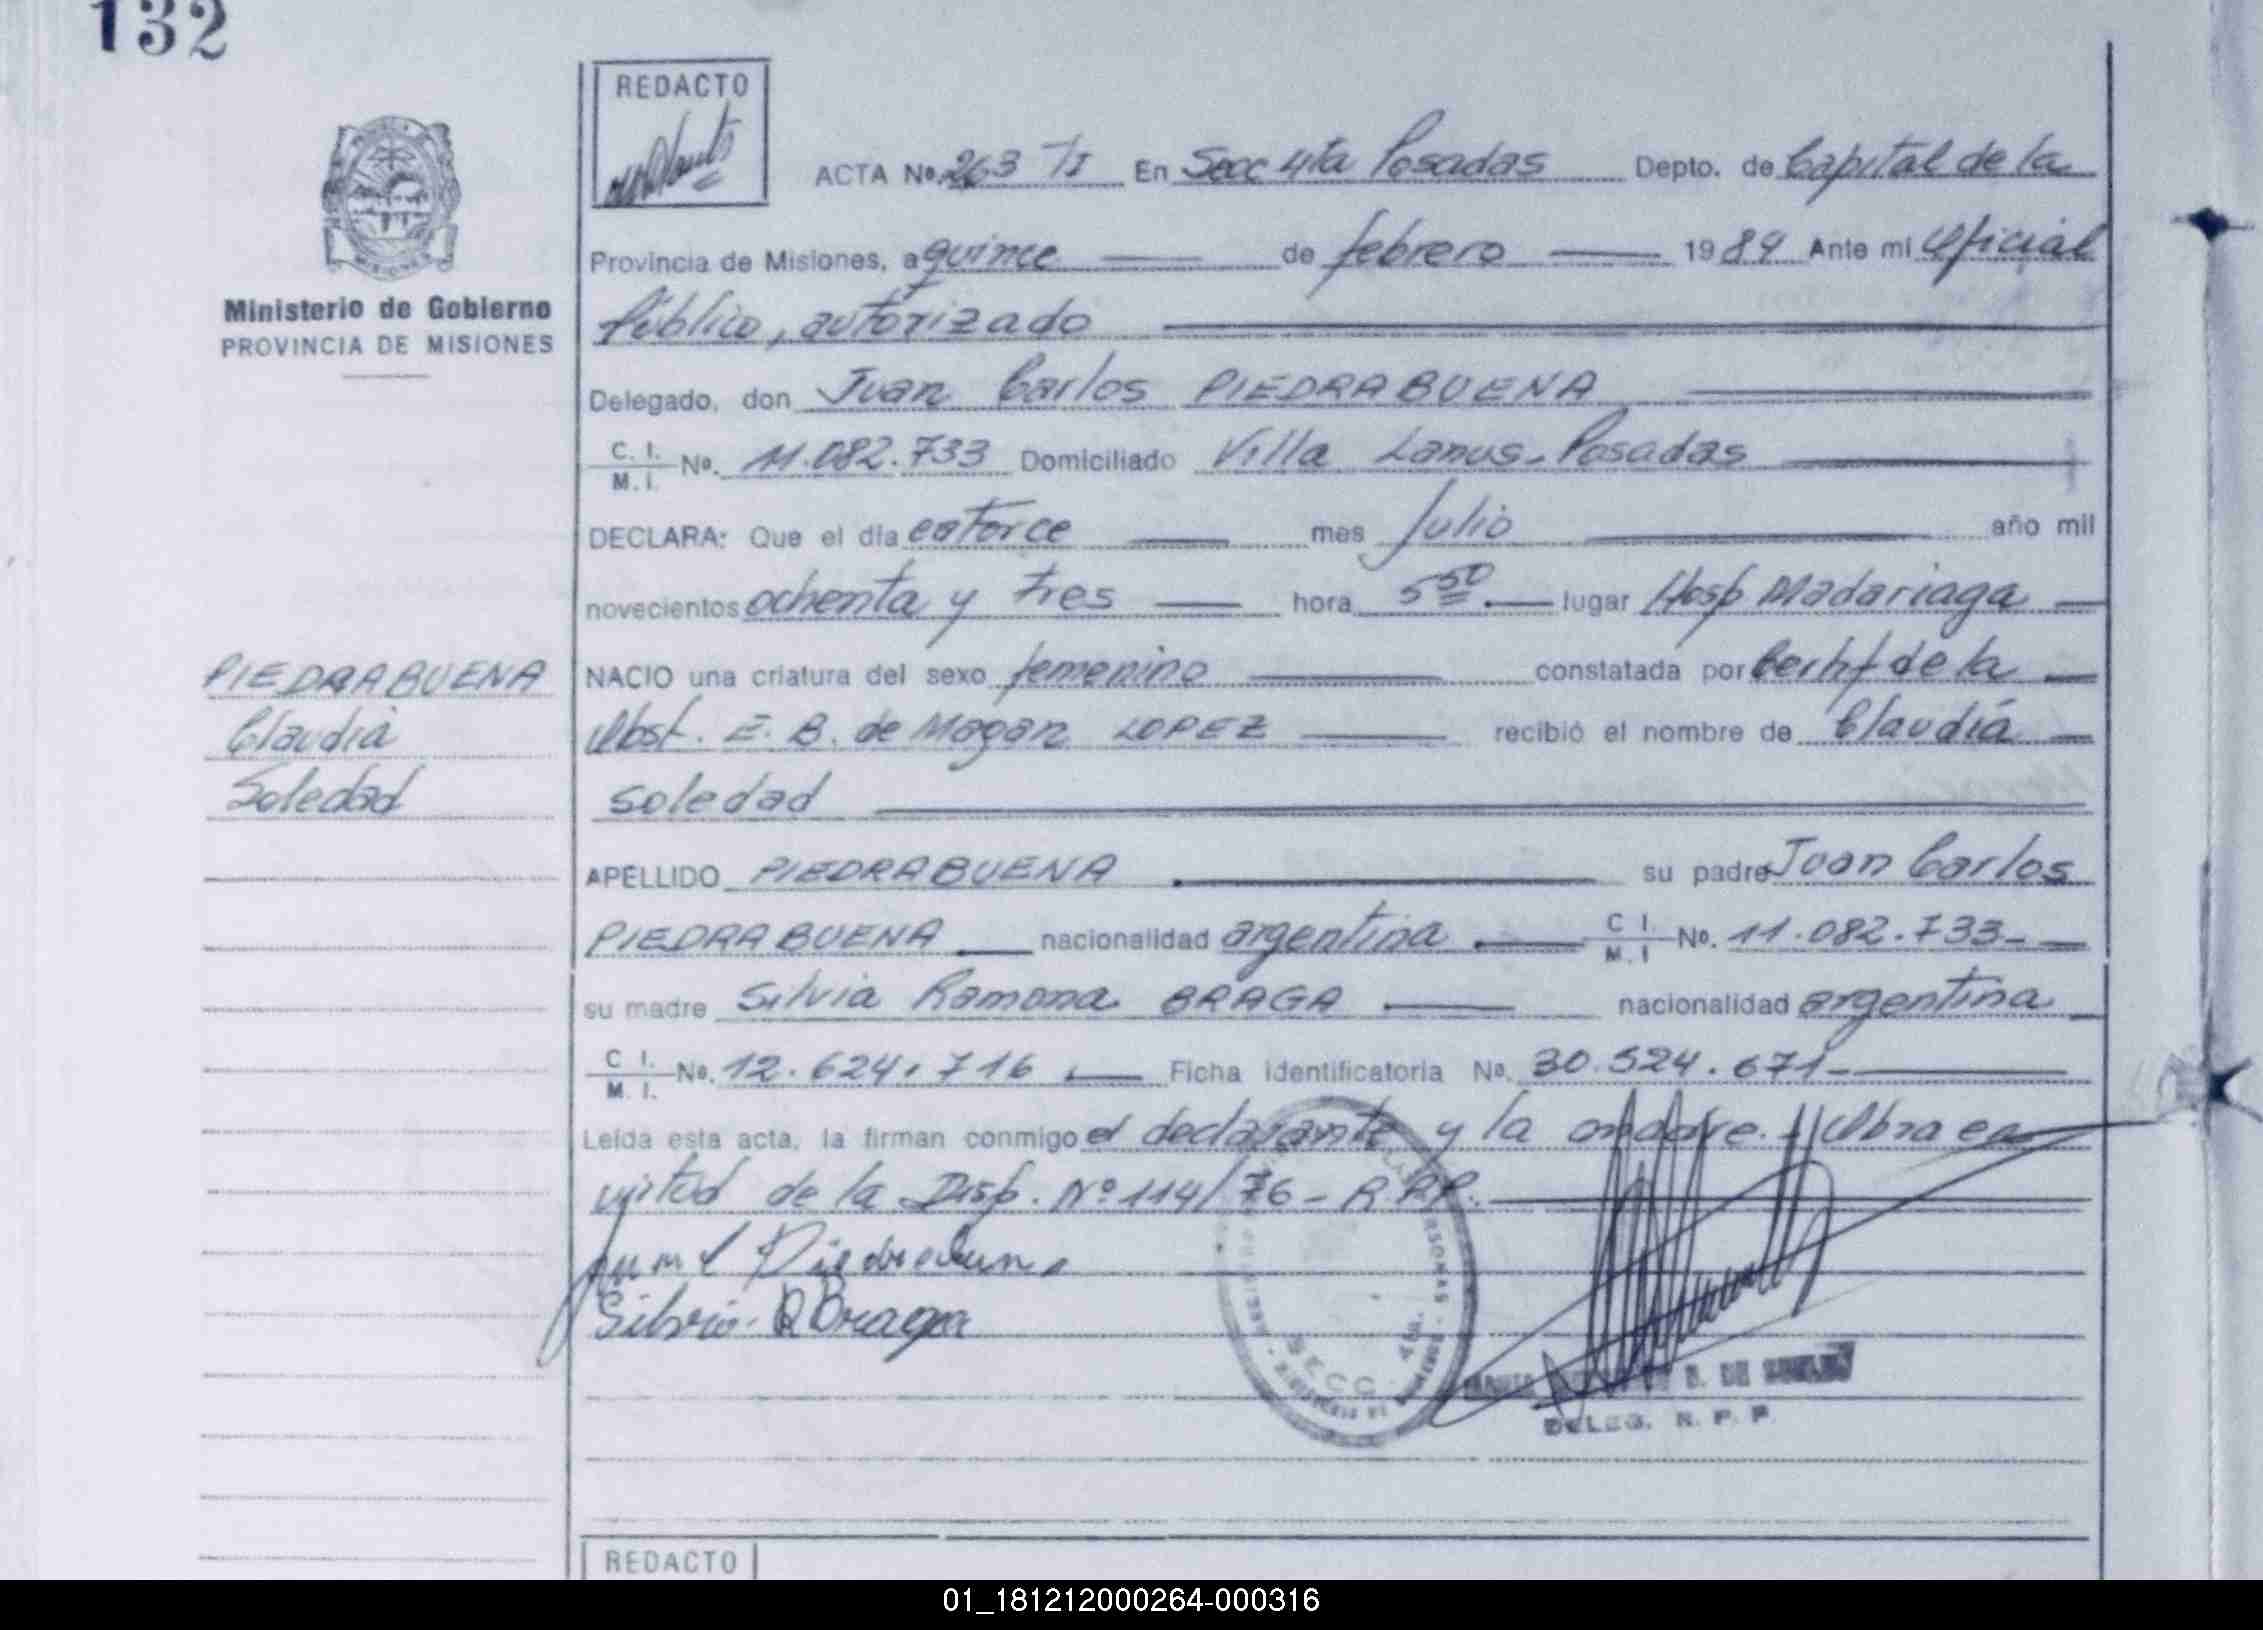 132
REDACTO
ACTA Nº 263 T/I En Secc 4ta Posadas Depto. de Capital de la
Provincia de Misiones, a quince de febrero 1984 Ante mi Oficial
Ministerio de Gobierno
PROVINCIA DE MISIONES
Público, autorizado
Delegado, don Juan Carlos PIEDRABUENA
C. I. M. I. Nº. 11.082.733 Domiciliado Villa Lanus-Posadas
DECLARA: Que el día catorce mes Julio año mil
novecientos ochenta y tres hora 5 50 lugar Hosp Madariaga
NACIO una criatura del sexo femenino constatada por Certif de la
Obst. E. B. de Magan LOPEZ recibió el nombre de Claudia
Soledad
PIEDRABUENA
Claudia
Soledad
APELLIDO PIEDRABUENA su padre Juan Carlos
PIEDRABUENA nacionalidad argentina C I. M. I Nº. 11.082.733-
su madre Silvia Ramona BRAGA nacionalidad argentina
C I. M. I. Nº. 12.624.716 Ficha identificatoria Nº. 30.524.671-
Leída esta acta, la firman conmigo el declarante y la madre.- Obra en
virtud de la Disp. Nº 114/76-R.P.P.
Silvia R Braga
SECC. 4ta.
DELEG. R. P. P.
REDACTO
01_181212000264-000316